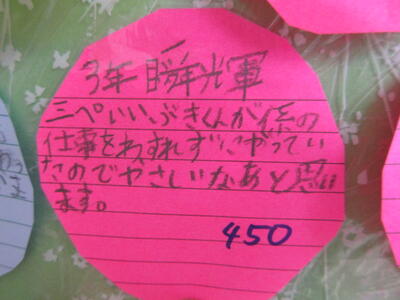 3年 瞬光軍
三ぺいいぶきくんが係の
仕事をわすれずにやってい
たのでやさしいなあと思い
ます。
450